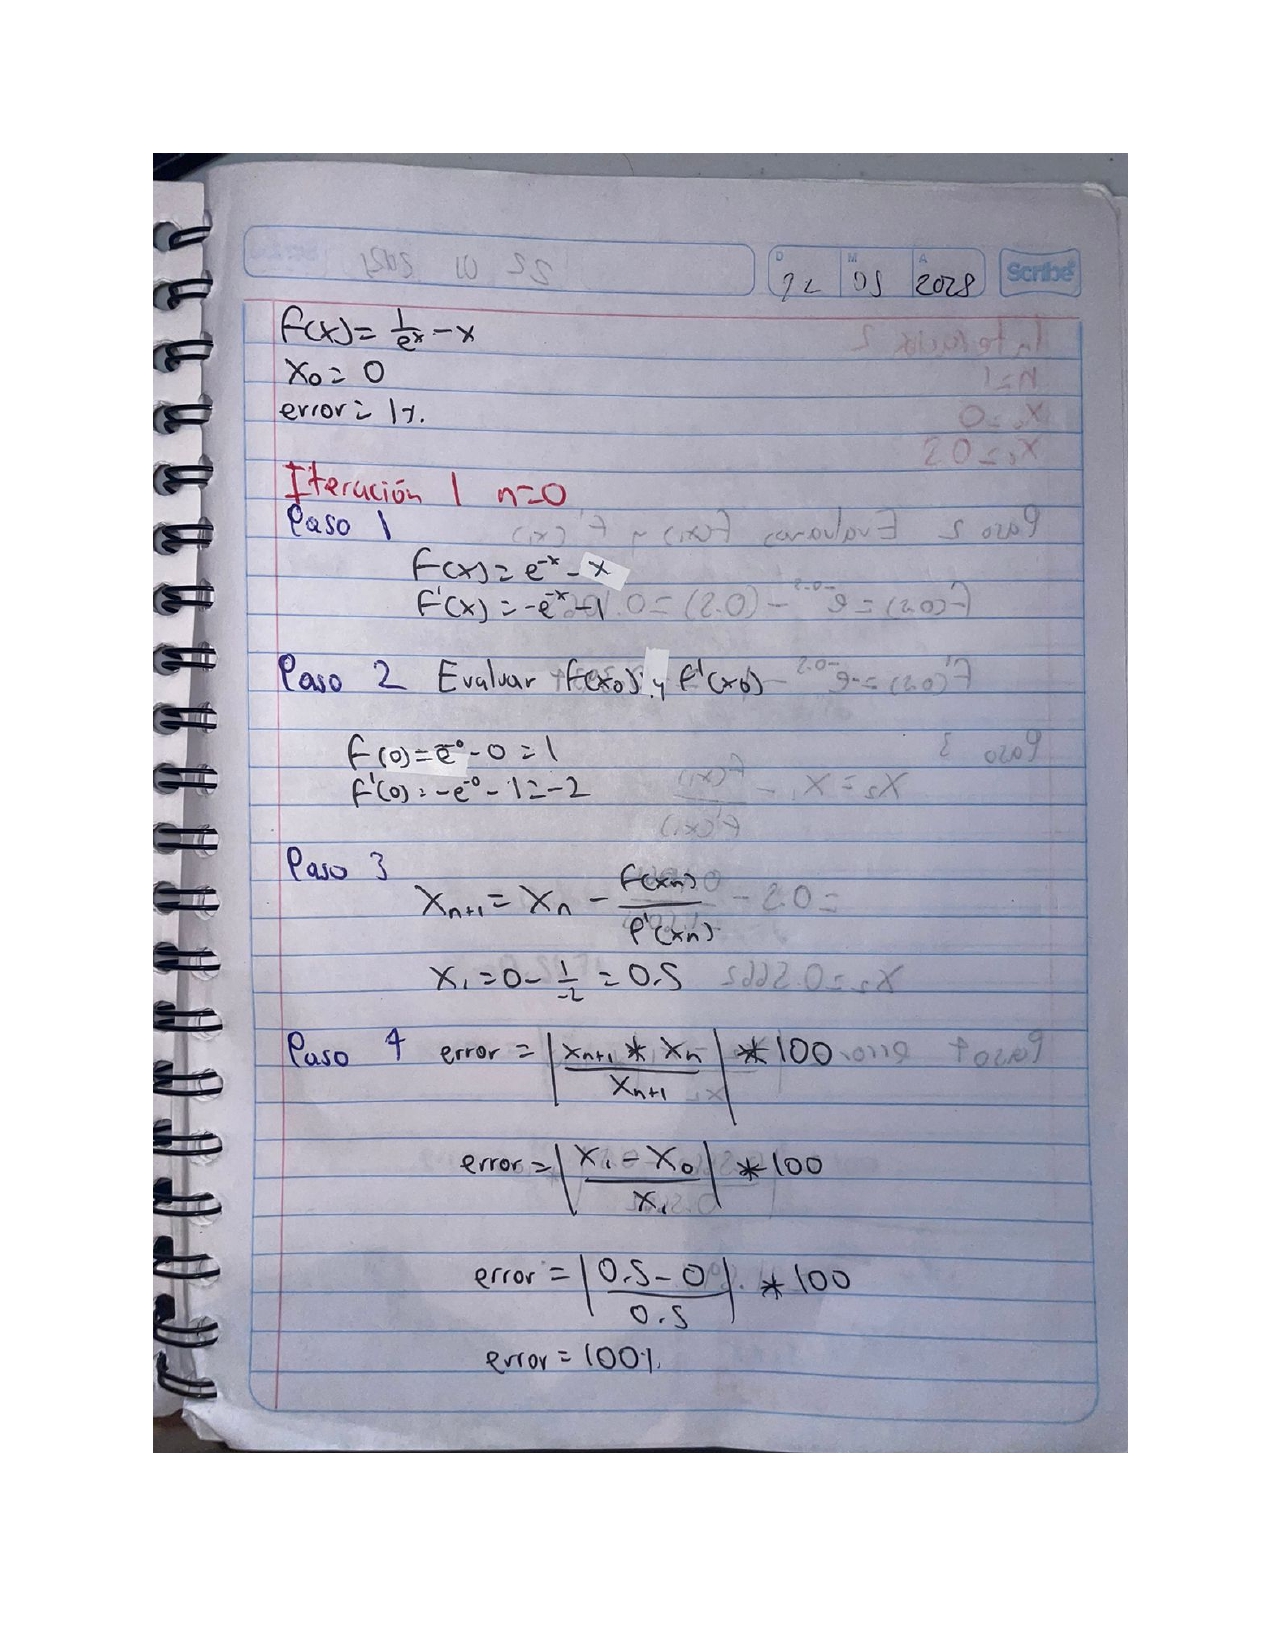 D M A
22 05 2025 Scribe
f(x) = 1/e^x - x
x₀ = 0
error = 1%.
Iteración 1 n=0
Paso 1
f(x) = e^-x - x
f'(x) = -e^-x - 1
Paso 2 Evaluar f(x₀) y f'(x₀)
f(0) = e^-0 - 0 = 1
f'(0) = -e^-0 - 1 = -2
Paso 3
Xn+1 = Xn - f(xn)/f'(xn)
X₁ = 0 - 1/-2 = 0.5
Paso 4 error = |Xn+1 * Xn / Xn+1| * 100
error = |X₁ - X₀ / X₁| * 100
error = |0.5 - 0 / 0.5| * 100
error = 100%.